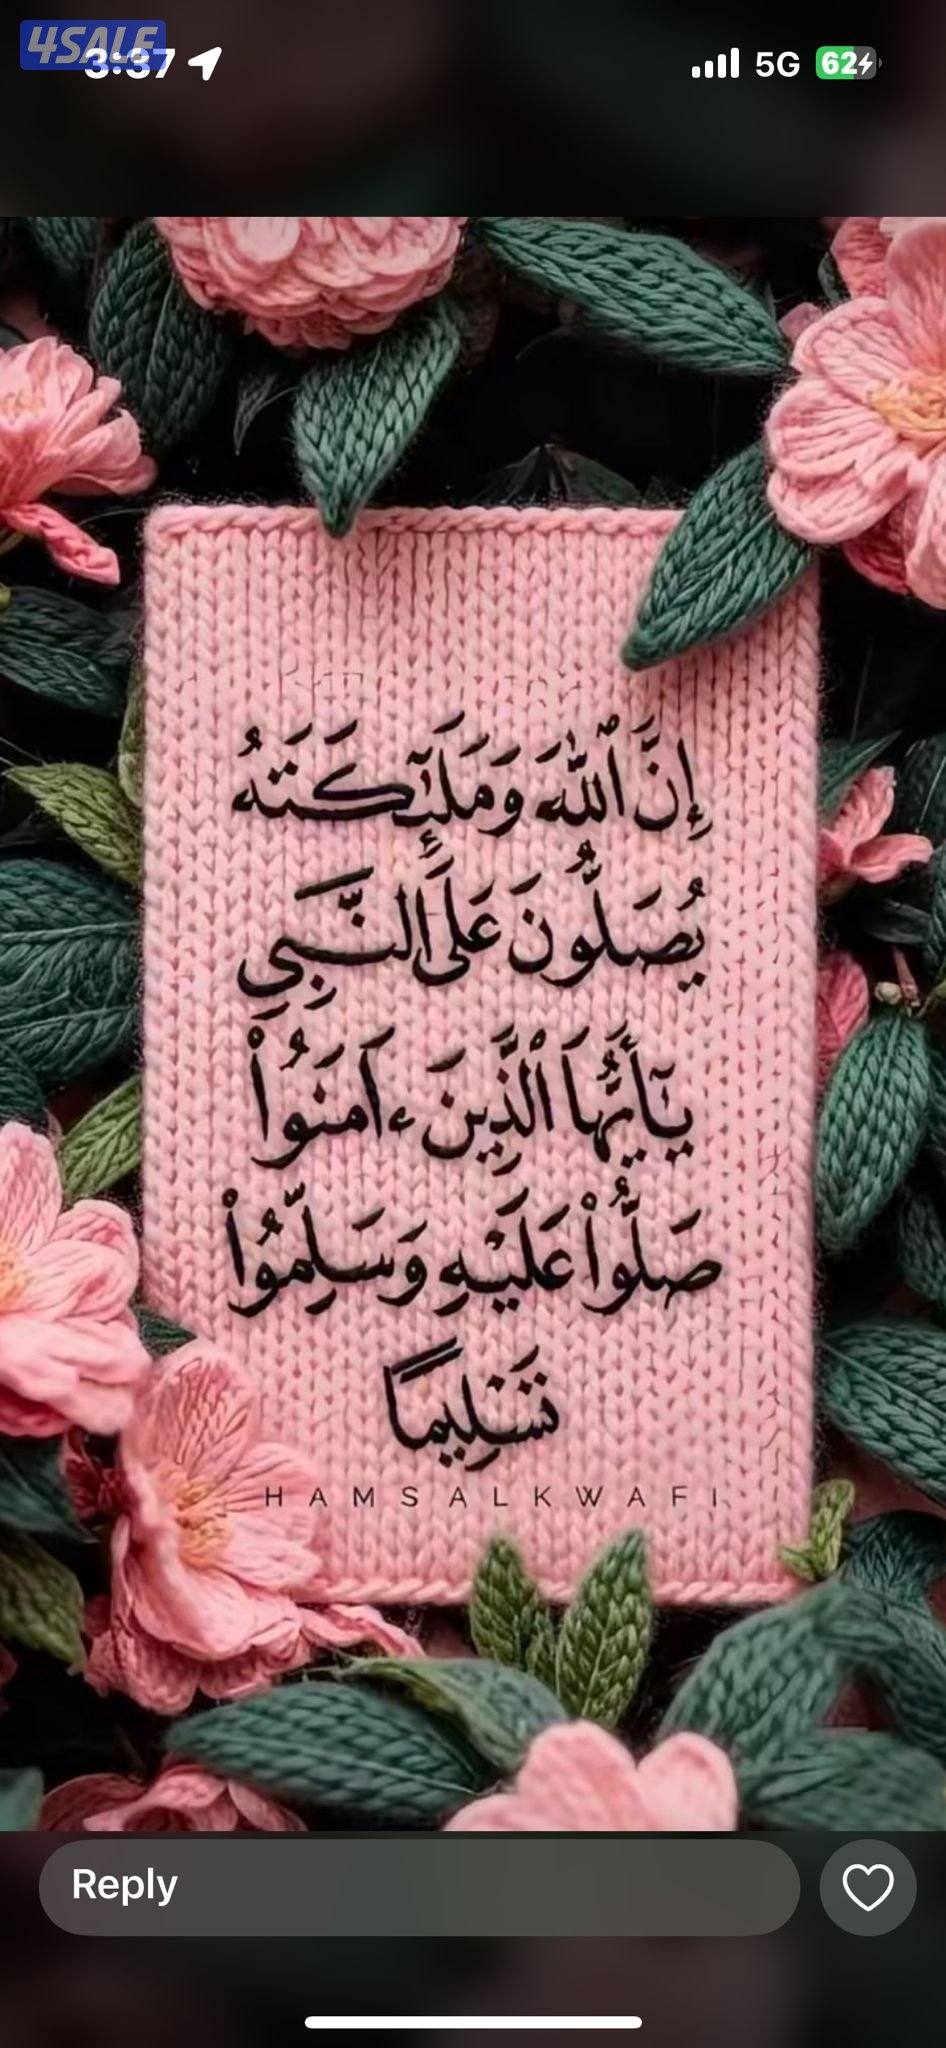 4SALE
3:37
5G
62
إِنَّ ٱللَّهَ وَمَلَٰٓئِكَتَهُ
يُصَلُّونَ عَلَى النَّبِيِ
يَٰٓأَيُّهَا ٱلَّذِينَ ءَامَنُوا۟
صَلُّوا۟ عَلَيْهِ وَسَلِّمُوا۟
تَسْلِيمًا
HAMSALKWAFI
Reply